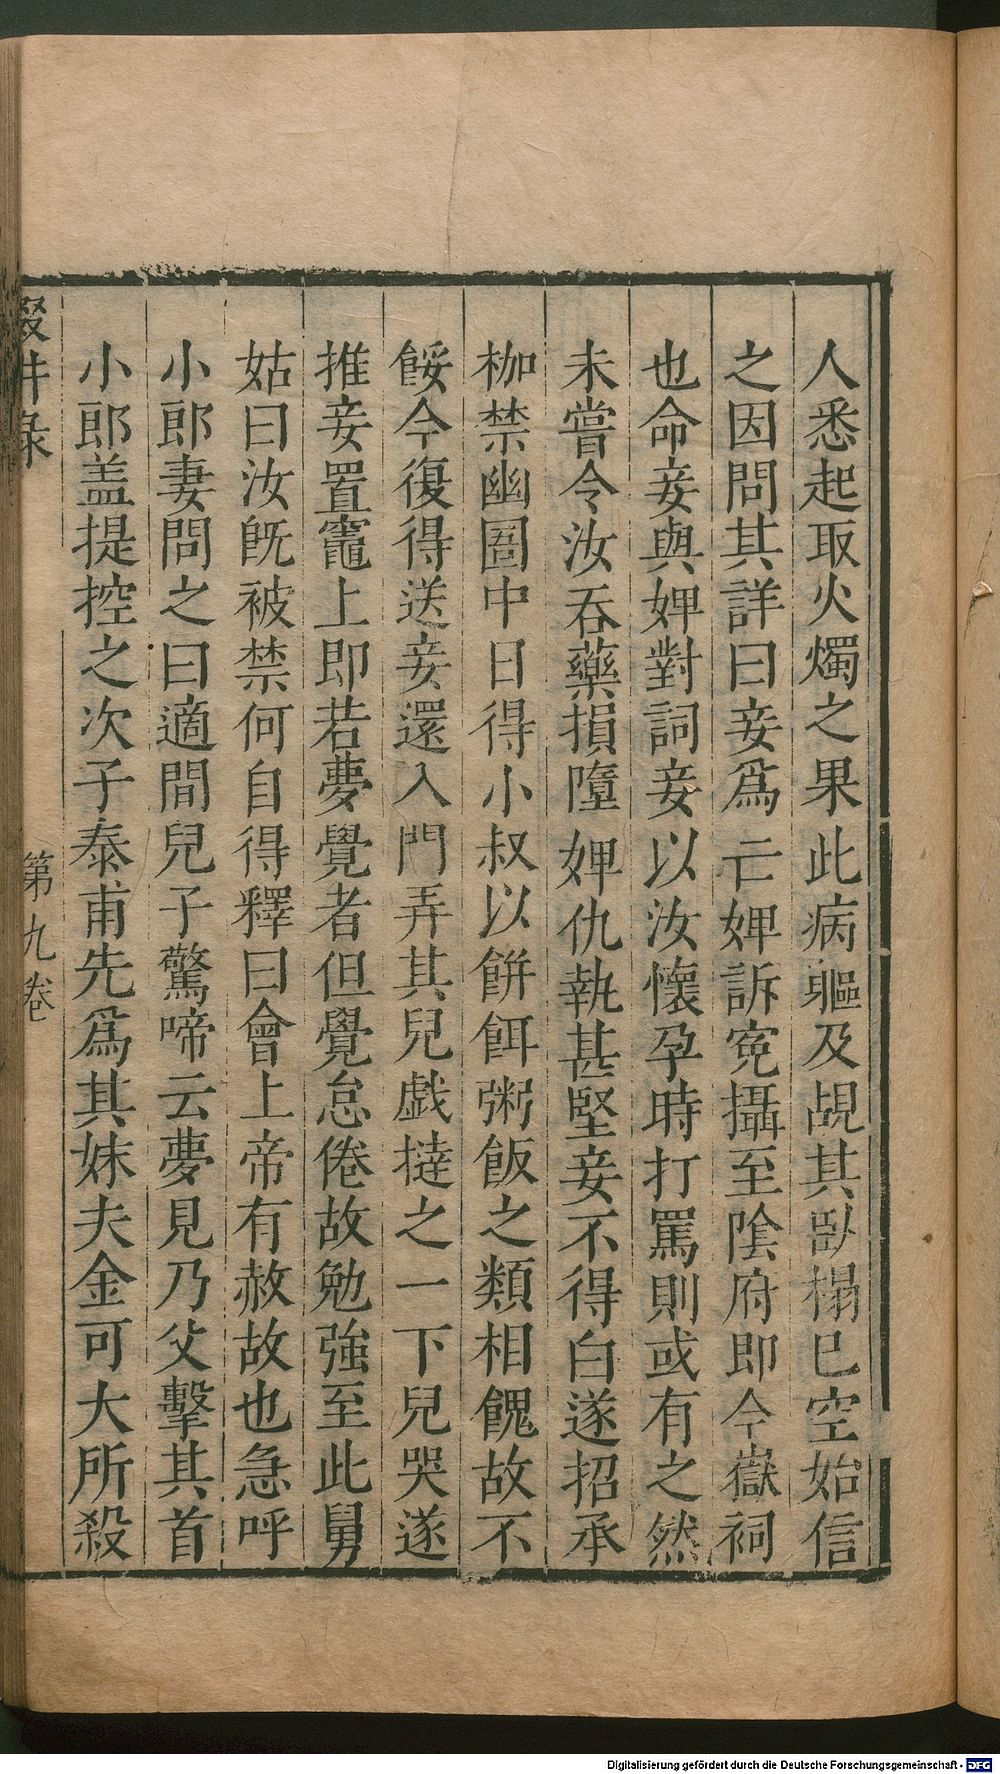 人悉起取火燭之果此病軀及覘其臥榻已空始信
之因問其詳曰妾爲亡婢訴寃攝至陰府即今嶽祠
也命妾與婢對詞妾以汝懷孕時打罵則或有之然
未嘗令汝吞藥損墮婢仇執甚堅妾不得白遂招承
枷禁幽圄中日得小叔以餅餌粥飯之類相餽故不
餒今復得送妾還入門弄其兒戯撻之一下兒哭遂
推妾置竈上即若夢覺者但覺怠倦故勉強至此舅
姑曰汝旣被禁何自得釋曰會上帝有赦故也急呼
小郎妻問之曰適間兒子驚啼云夢見乃父擊其首
小郎盖提控之次子泰甫先爲其妹夫金可大所殺
輟畊錄
第九卷
Digitalisierung gefördert durch die Deutsche Forschungsgemeinschaft - DFG